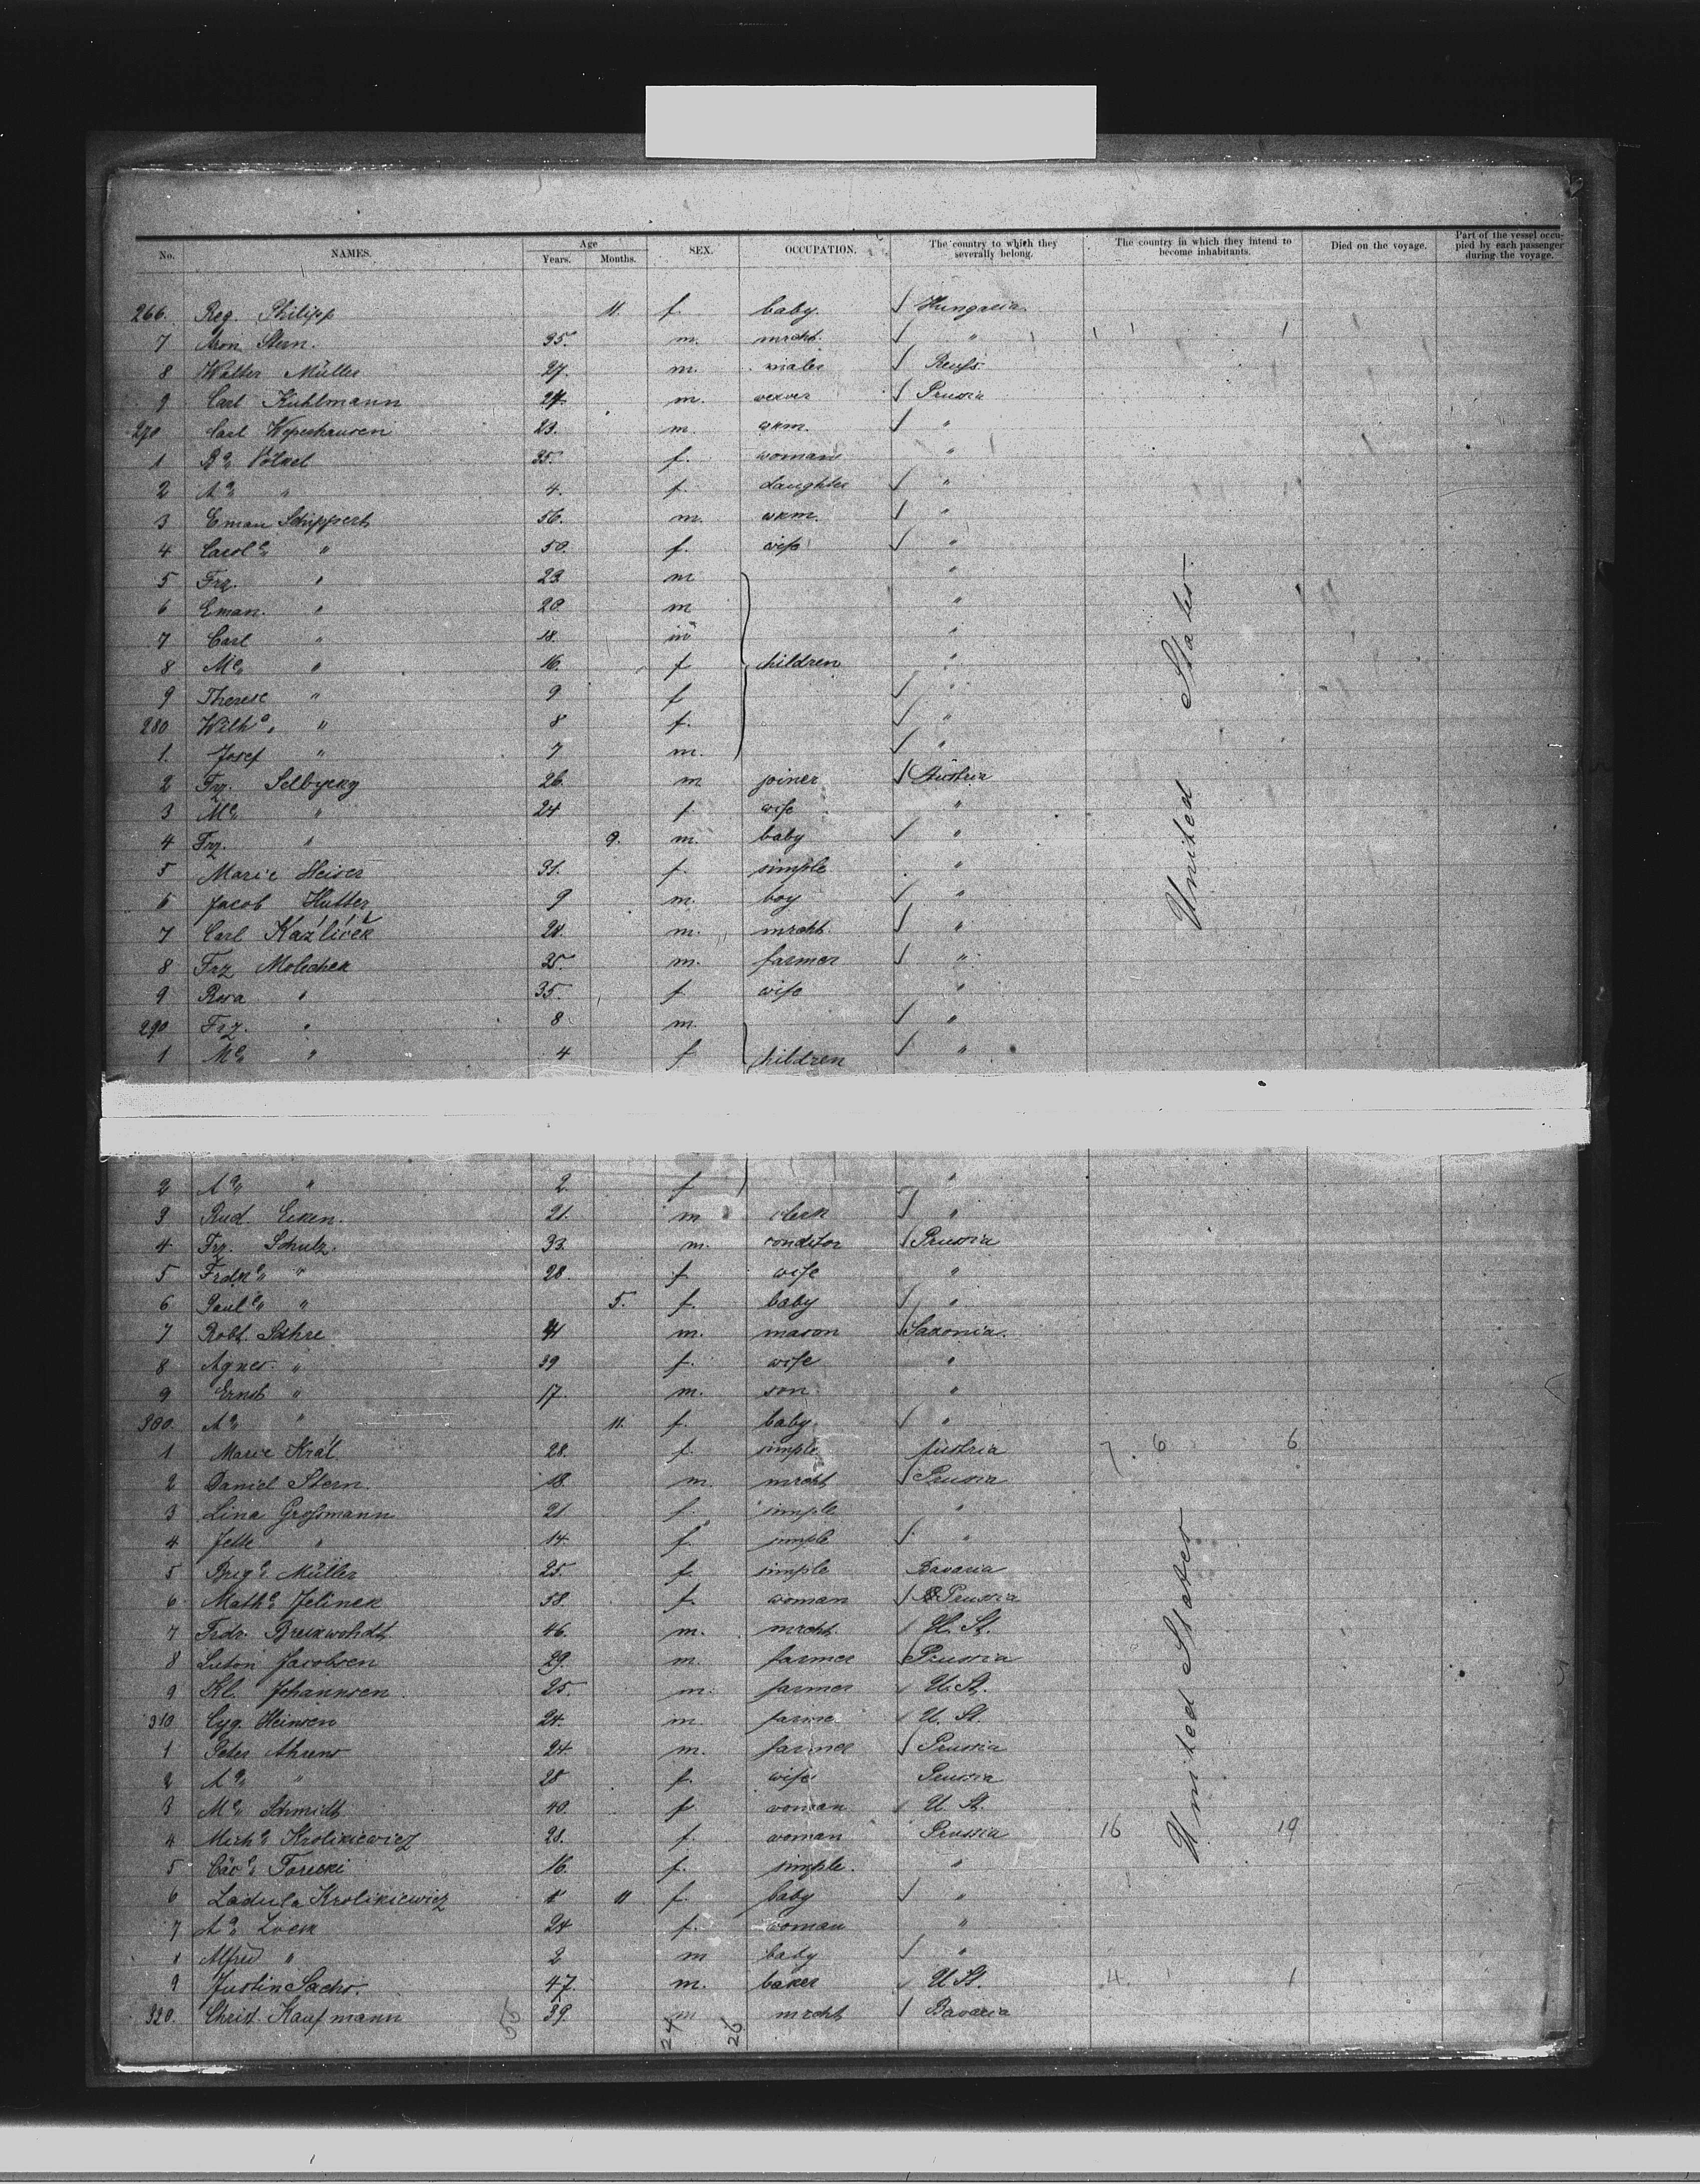 No. NAMES. Age Years. Months. SEX. OCCUPATION. The country to which they severally belong. The country in which they intend to become inhabitants. Died on the voyage. Part of the vessel occupied by each passenger during the voyage.
266. Reg. Philipp 11. f. baby. Hungaria
7 Aron Stern. 35. m. mrcht. "
8 Walter Müller 27. m. Reuſs.
9 Carl Kuhlmann 24. m. weaver Prussia
270 Carl 23. m. wkm. "
1 Bª Völkel 35. f. woman "
2 Aª " 4. f. daughter "
3 Eman Schippert 56. m. wkm. "
4 Carolª " 50. f. wife "
5 Frz. " 23. m "
6 Eman. " 20. m "
7 Carl " 18. m "
8 Mª " 16. f children "
9 Therese " 9 f "
280 Wilhª " 8 f. "
1. Josef " 7 m. "
2 Frz. Selbycky 26. m. joiner Austria
3 Mª " 24 f. wife "
4 Frz. " 9. m. baby "
5 Marie Heiser 31. f. simple "
6 Jacob Hutter 9 m. boy "
7 Carl Kazlíček 20. m. mrcht. "
8 Frz Molichek 35. m. farmer "
9 Rosa " 35. f wife "
290 Frz. " 8 m. "
1 Mª " 4 f children "
United States
2 Aª " 2. f "
3 Rud. Eiken. 21. m clerk "
4 Frz. Schulz. 33. m. conditor Prussia
5 Frdkª " 28. f wife "
6 Paulª " 5. f. baby "
7 Robt. Sähre 41 m. mason Saxonia.
8 Agnes. " 39 f. wife "
9 Ernst " 17. m. son "
300. Aª " 11. f. baby "
1 Marie Král 28. f. simple Austria 7 6 6
2 Daniel Stern. 18. m. mrcht Prussia
3 Lina Großmann 21 f. simple "
4 Jette " 14. f. simple "
5 Brigª Müller 25. f. simple Bavaria
6 Mathª Jelinek 58. f. woman Prussia
7 Frdr. Breckwohdt 46. m. mrcht. U. St.
8 Jacobsen 29. m. farmer Prussia
9 Kl. Johannsen. 25. m. farmer U. St.
310 Cyg. Heinsen 24. m. farmer U. St.
1 Peter Ahrens 24 m. farmer Prussia
2 Aª " 28 f. wife Prussia
3 Mª Schmidt 40. f. woman U. St.
4 Michª Krolikiewicz 28. f. woman Prussia 16 19
5 Cäcª Toricki 16. f. simple. "
6 Ladula Krolikiewicz 11 f. baby "
7 Aª Lock 24 f. woman "
8 Alfred " 2 m baby "
9 Justin Sachs. 47. m. baker U. St. 4 1
320. Christ Kaufmann 39. m mrcht Bavaria
United States
55 24 26